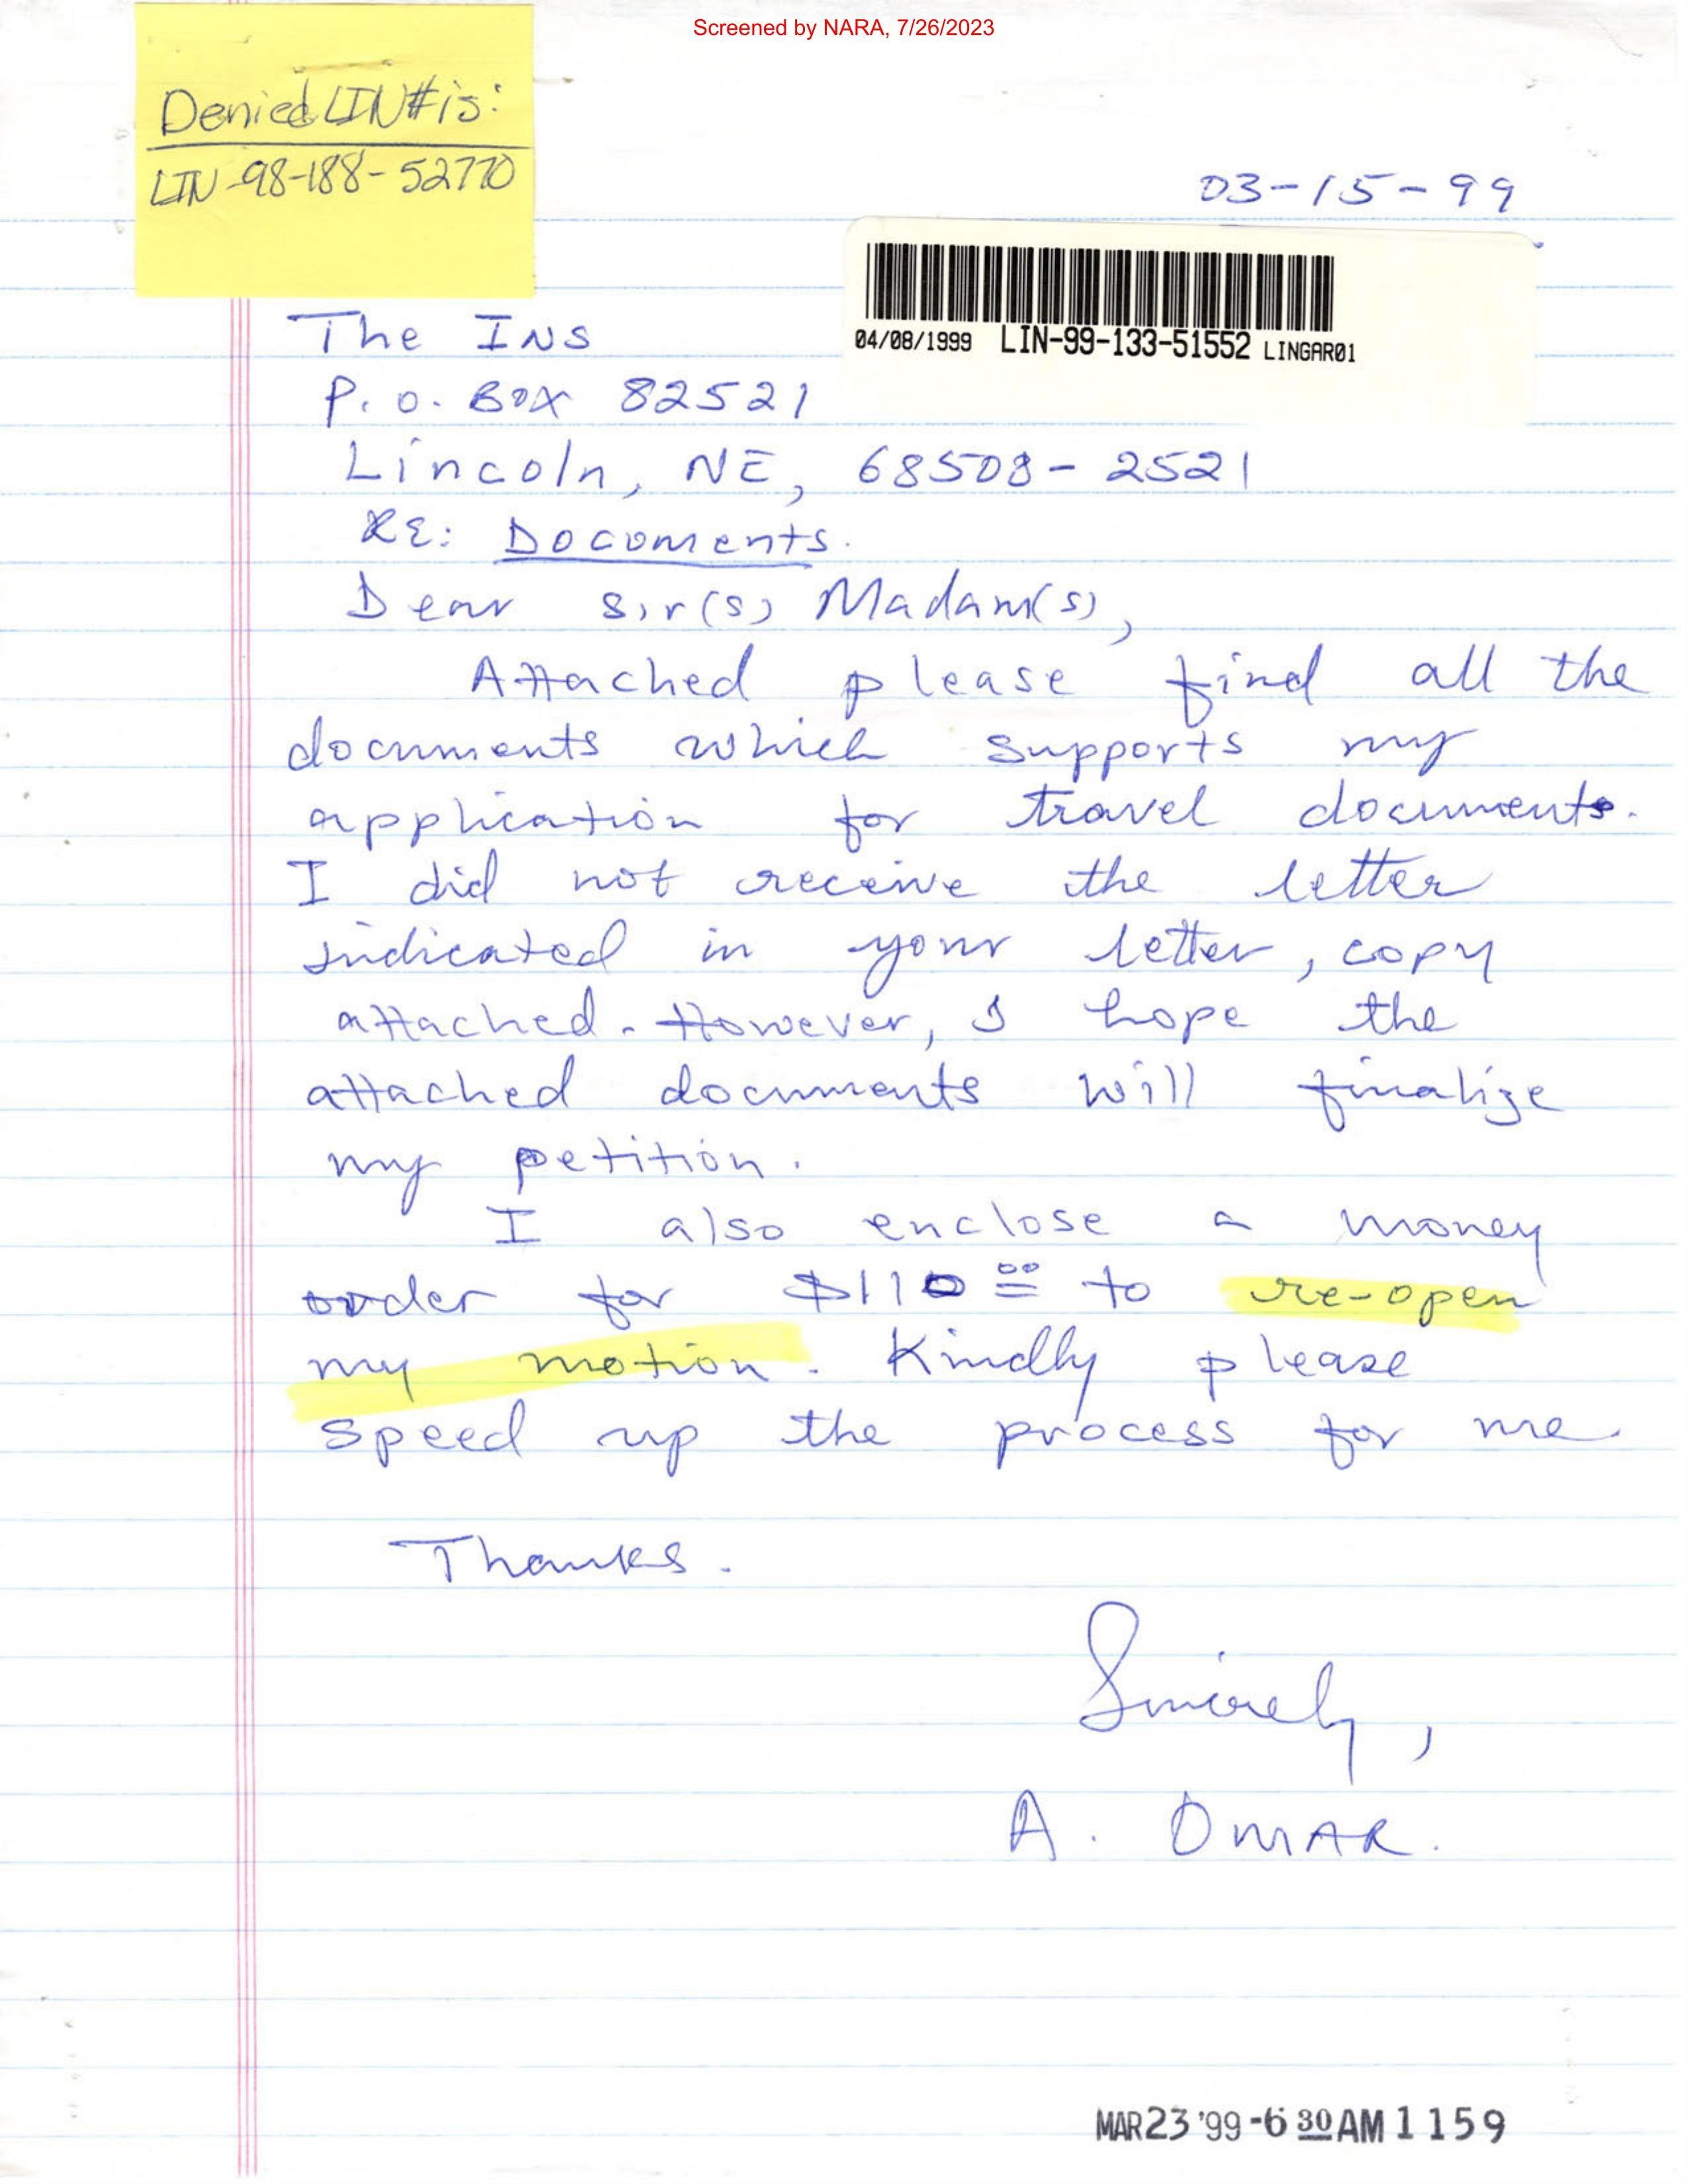 Screened by NARA, 7/26/2023
Denied LIN# is:
LIN-98-188-52770
03-15-99
04/08/1999 LIN-99-133-51552 LINGAR01
The INS
P.O. BOX 82521
Lincoln, NE, 68508-2521
RE: Documents.
Dear Sir(s) Madam(s),
Attached please find all the
documents which supports my
application for travel documents.
I did not receive the letter
indicated in your letter, copy
attached. However, I hope the
attached documents will finalize
my petition.
I also enclose a money
order for $110 00 to re-open
my motion. Kindly please
speed up the process for me.
Thanks.
Sincerely,
A. OMAR.
MAR 23 '99 -6 30 AM 1159